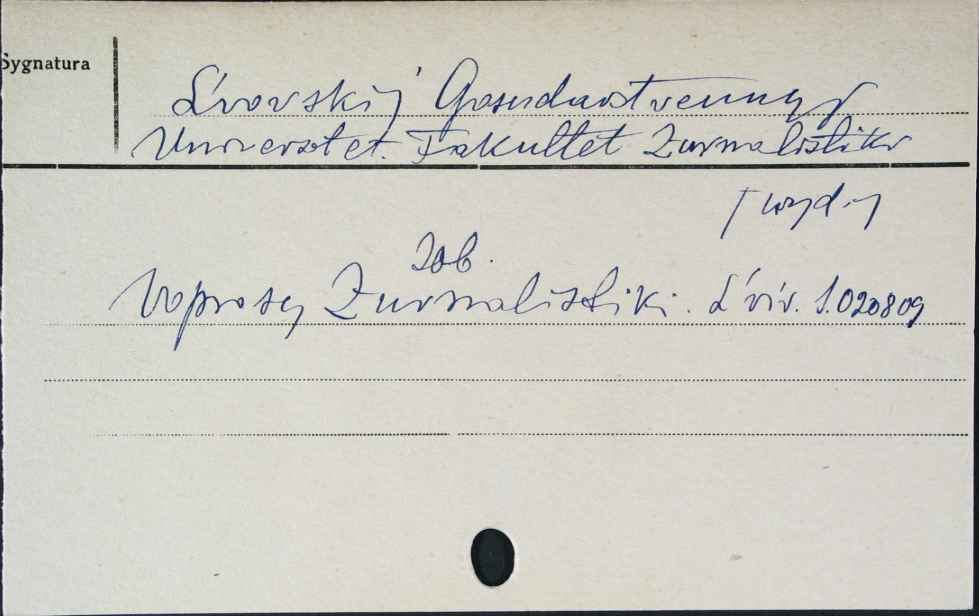 Sygnatura
L'vovskij Gosudarstvennyj
Universitet. Fakultet Žurnalistiki
[wyd.]
zob.
Voprosy Žurnalistiki. L'viv. S.020809